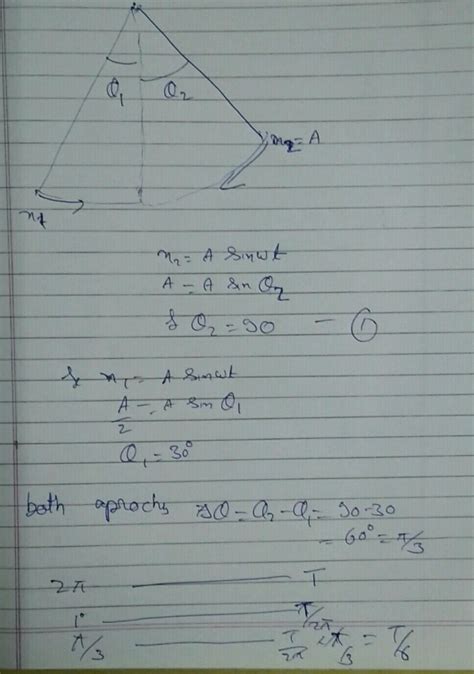 θ₁
θ₂
x₂ = A
x₁
x₂ = A sinωt
A = A sin θ₂
& θ₂ = 90 — ①
& x₁ = A sinωt
A/2 = A sin θ₁
θ₁ = 30°
both aprochs ⇒ θ = θ₂ - θ₁ = 90-30
= 60° = π/3
2π — T
1° — T/2π
π/3 — T/2π × π/3 = T/6